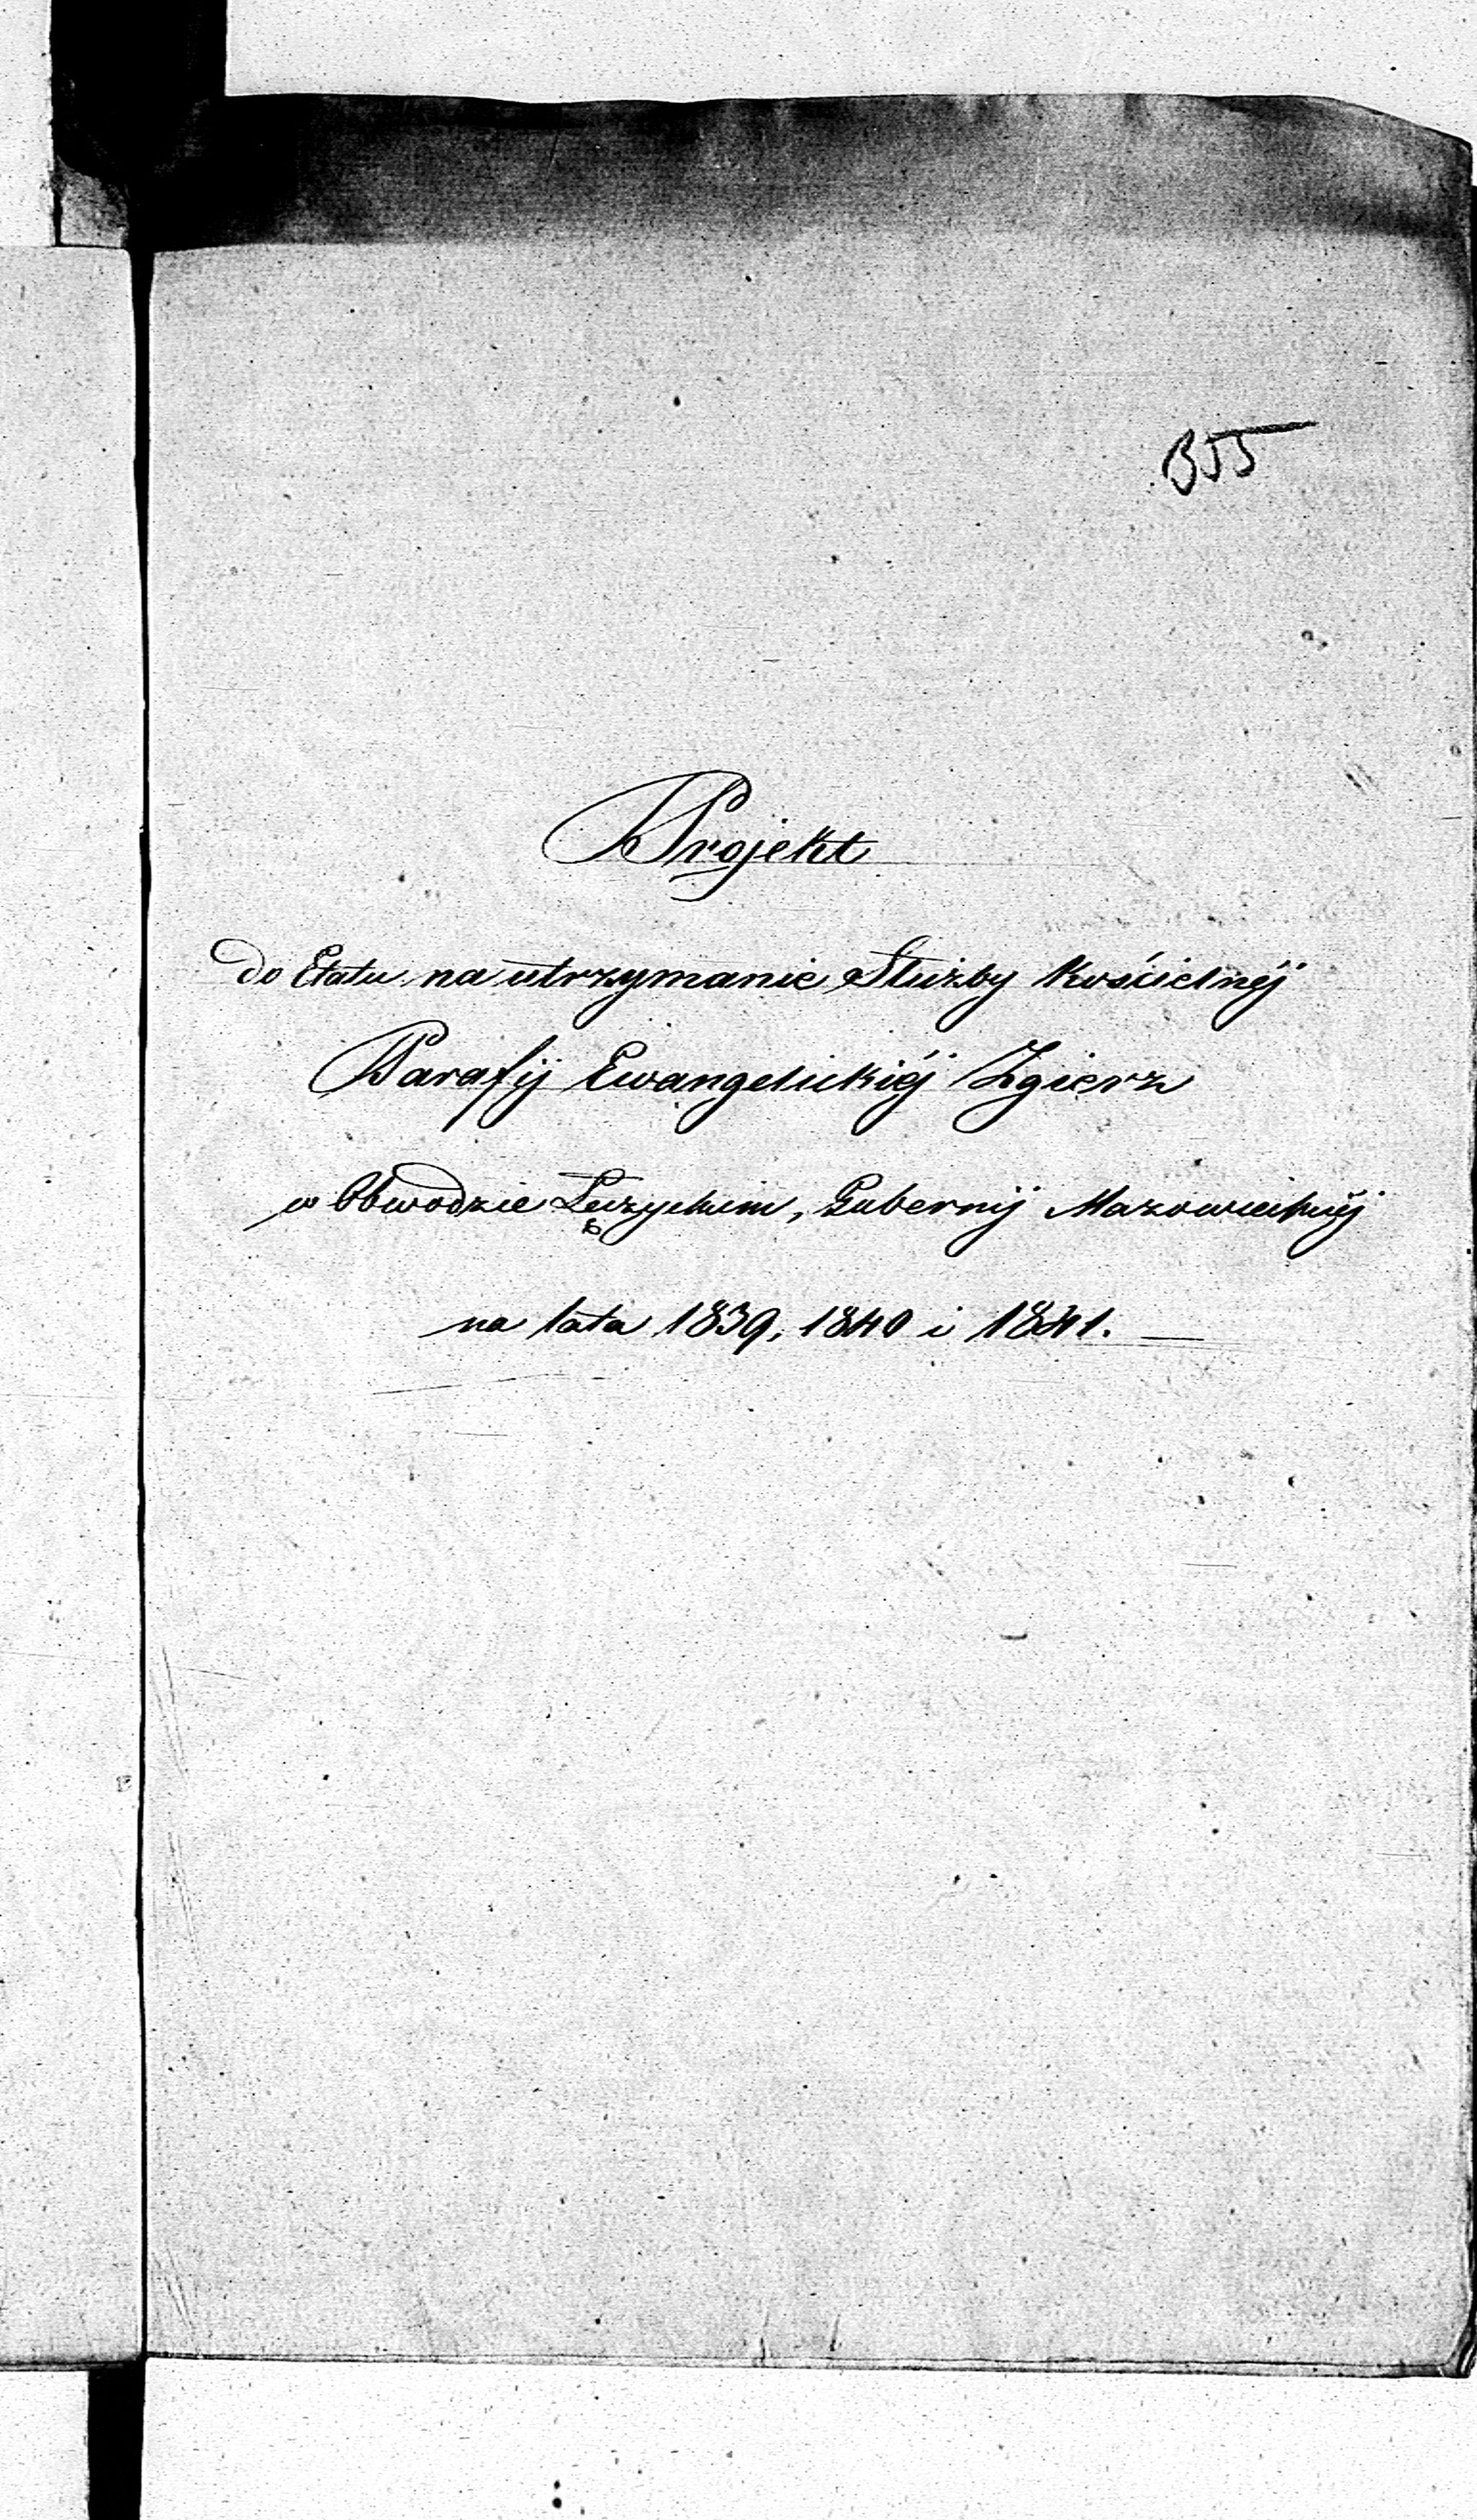 355
Projekt
do Etatu na utrzymanie Służby Kościelnéj
Parafij Ewangelickiéj Zgierz
w Obwodzie Łęczyckim, Gubernij Mazowieckiéj
na lata 1839, 1840 i 1841.